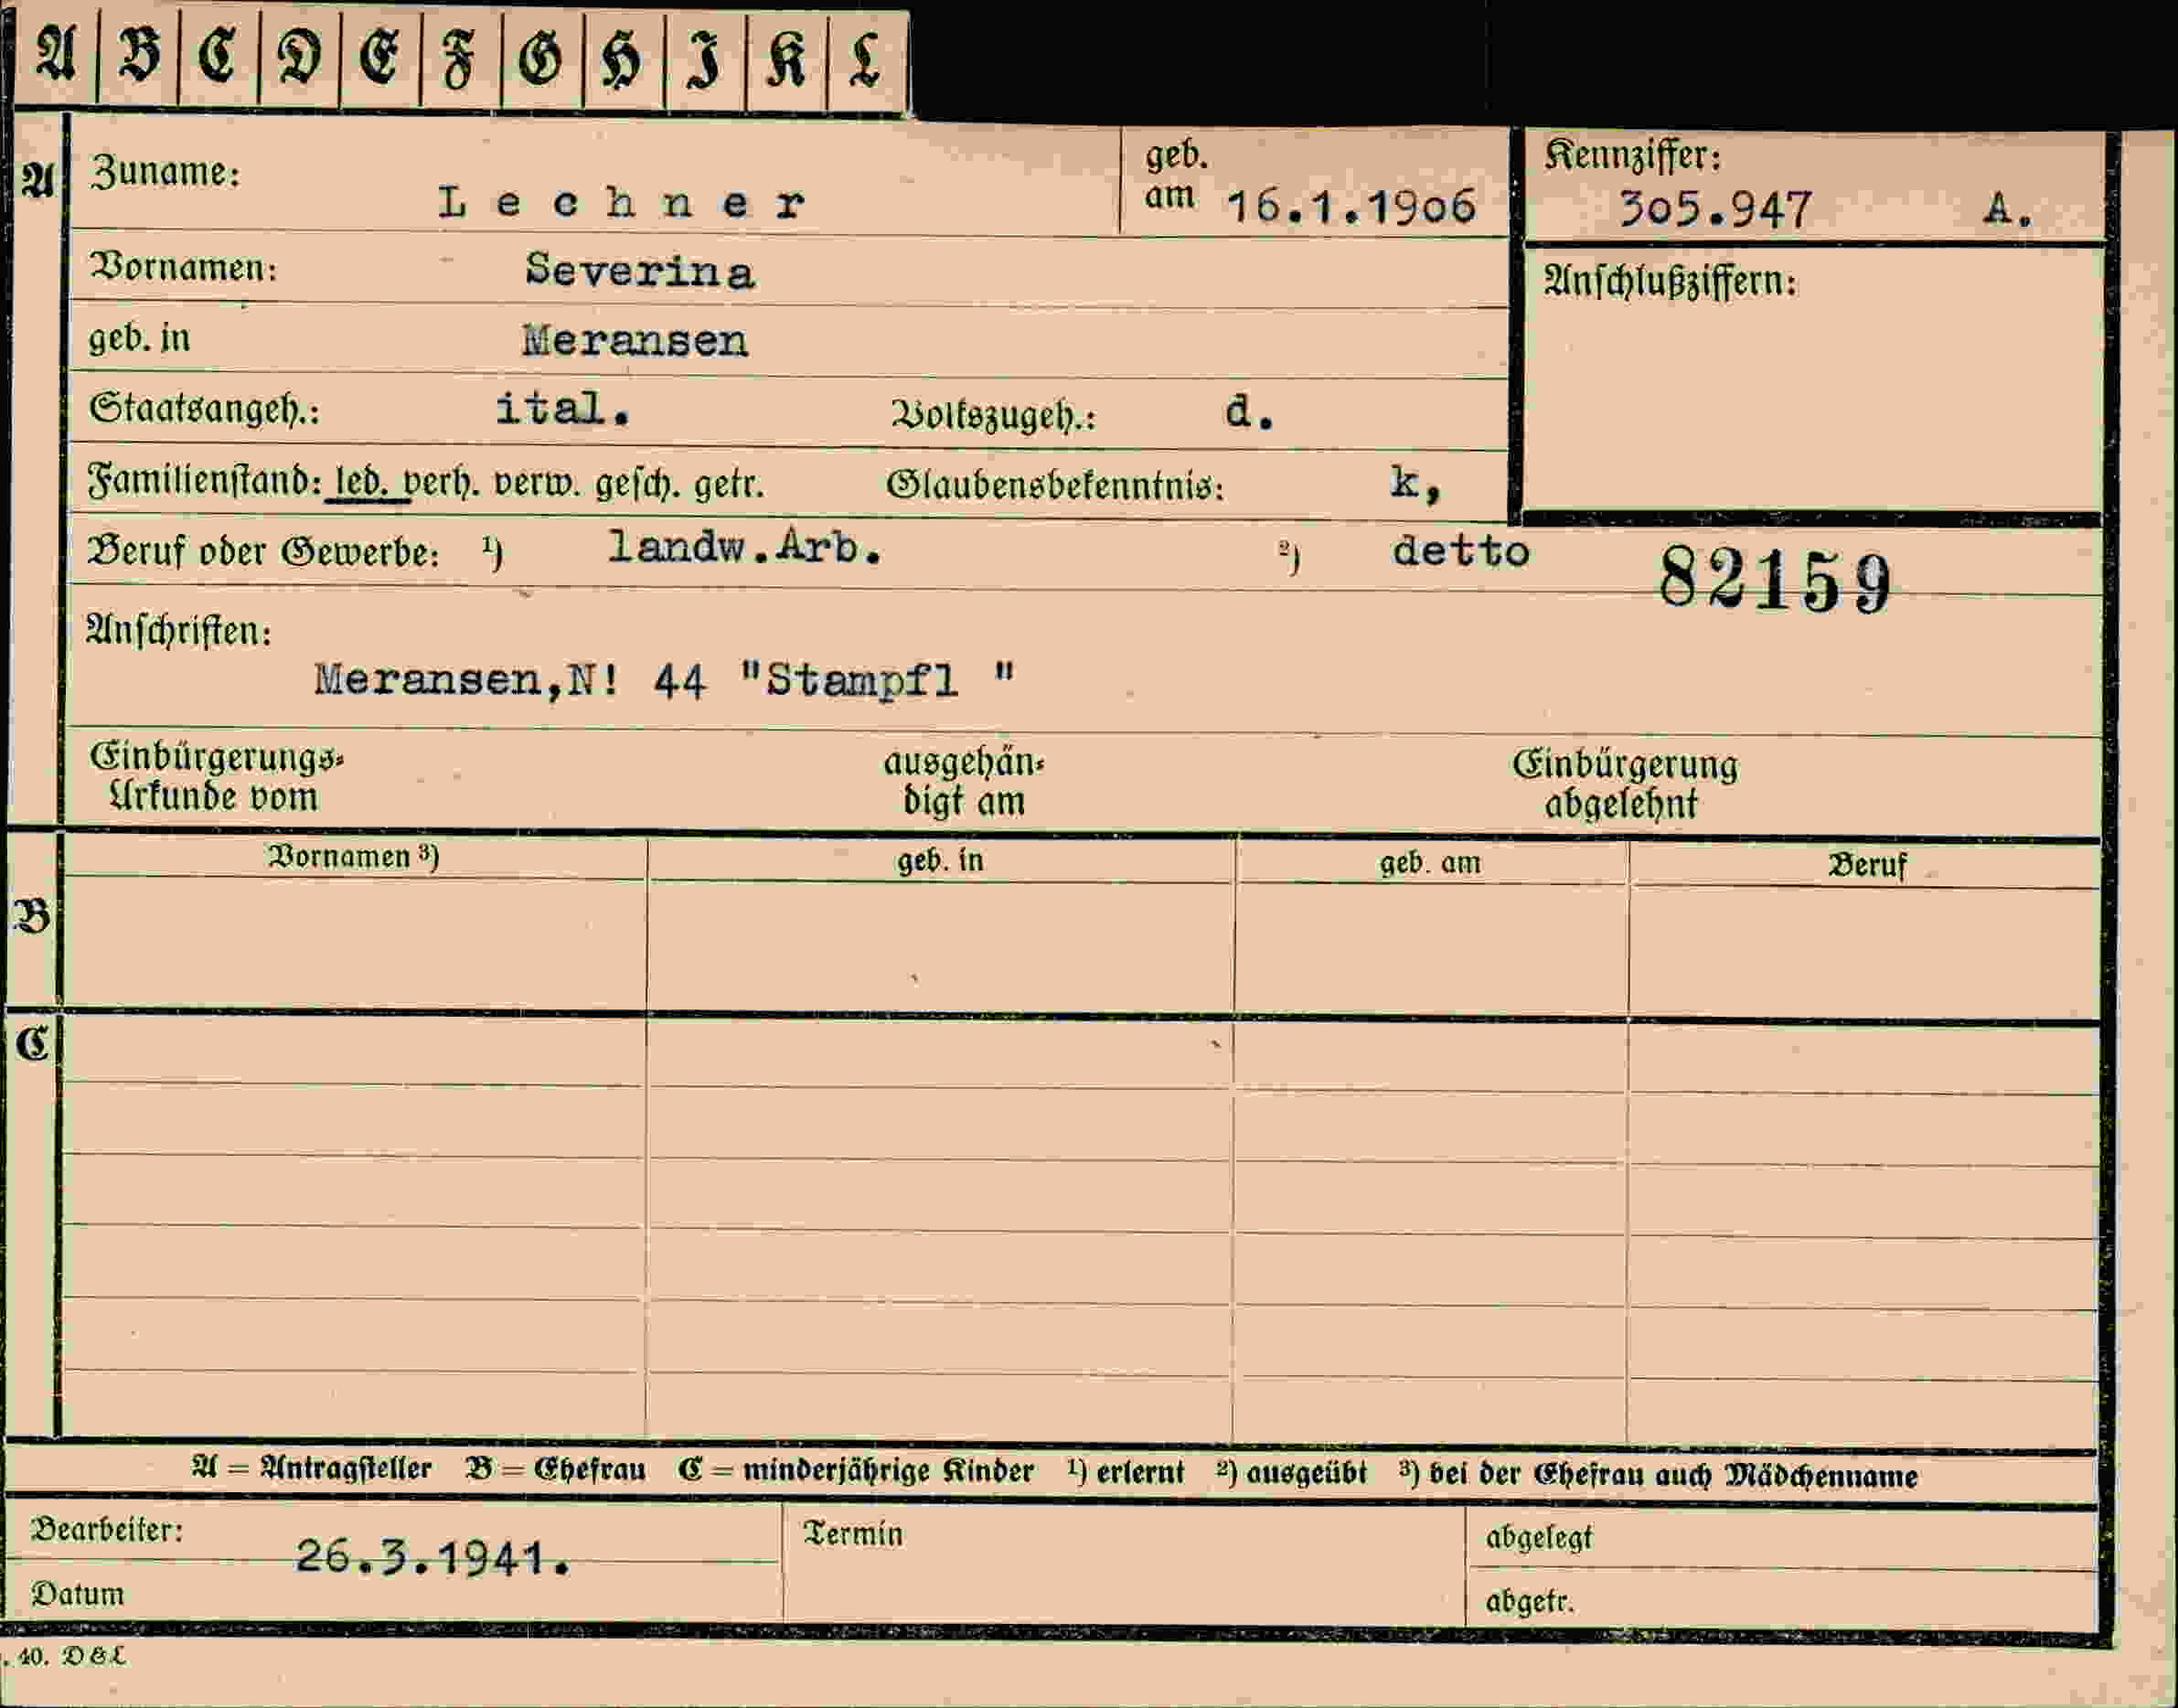 A B C D E F G H I K L
A Zuname: Lechner geb. am 16.1.1906 Kennziffer: 305.947 A.
Vornamen: Severina Anschlußziffern:
geb. in Meransen
Staatsangeh.: ital. Volkszugeh.: d.
Familienstand: led. verh. verw. gesch. getr. Glaubensbekenntnis: k,
Beruf oder Gewerbe: 1) landw.Arb. 2) detto 82159
Anschriften:
Meransen,N! 44 "Stampfl "
Einbürgerungs- ausgehän- Einbürgerung
Urkunde vom digt am abgelehnt
Vornamen 3) geb. in geb. am Beruf
B
C
A = Antragsteller B = Ehefrau C = minderjährige Kinder 1) erlernt 2) ausgeübt 3) bei der Ehefrau auch Mädchenname
Bearbeiter: Termin abgelegt
26.3.1941.
Datum abgetr.
. 40. D & L